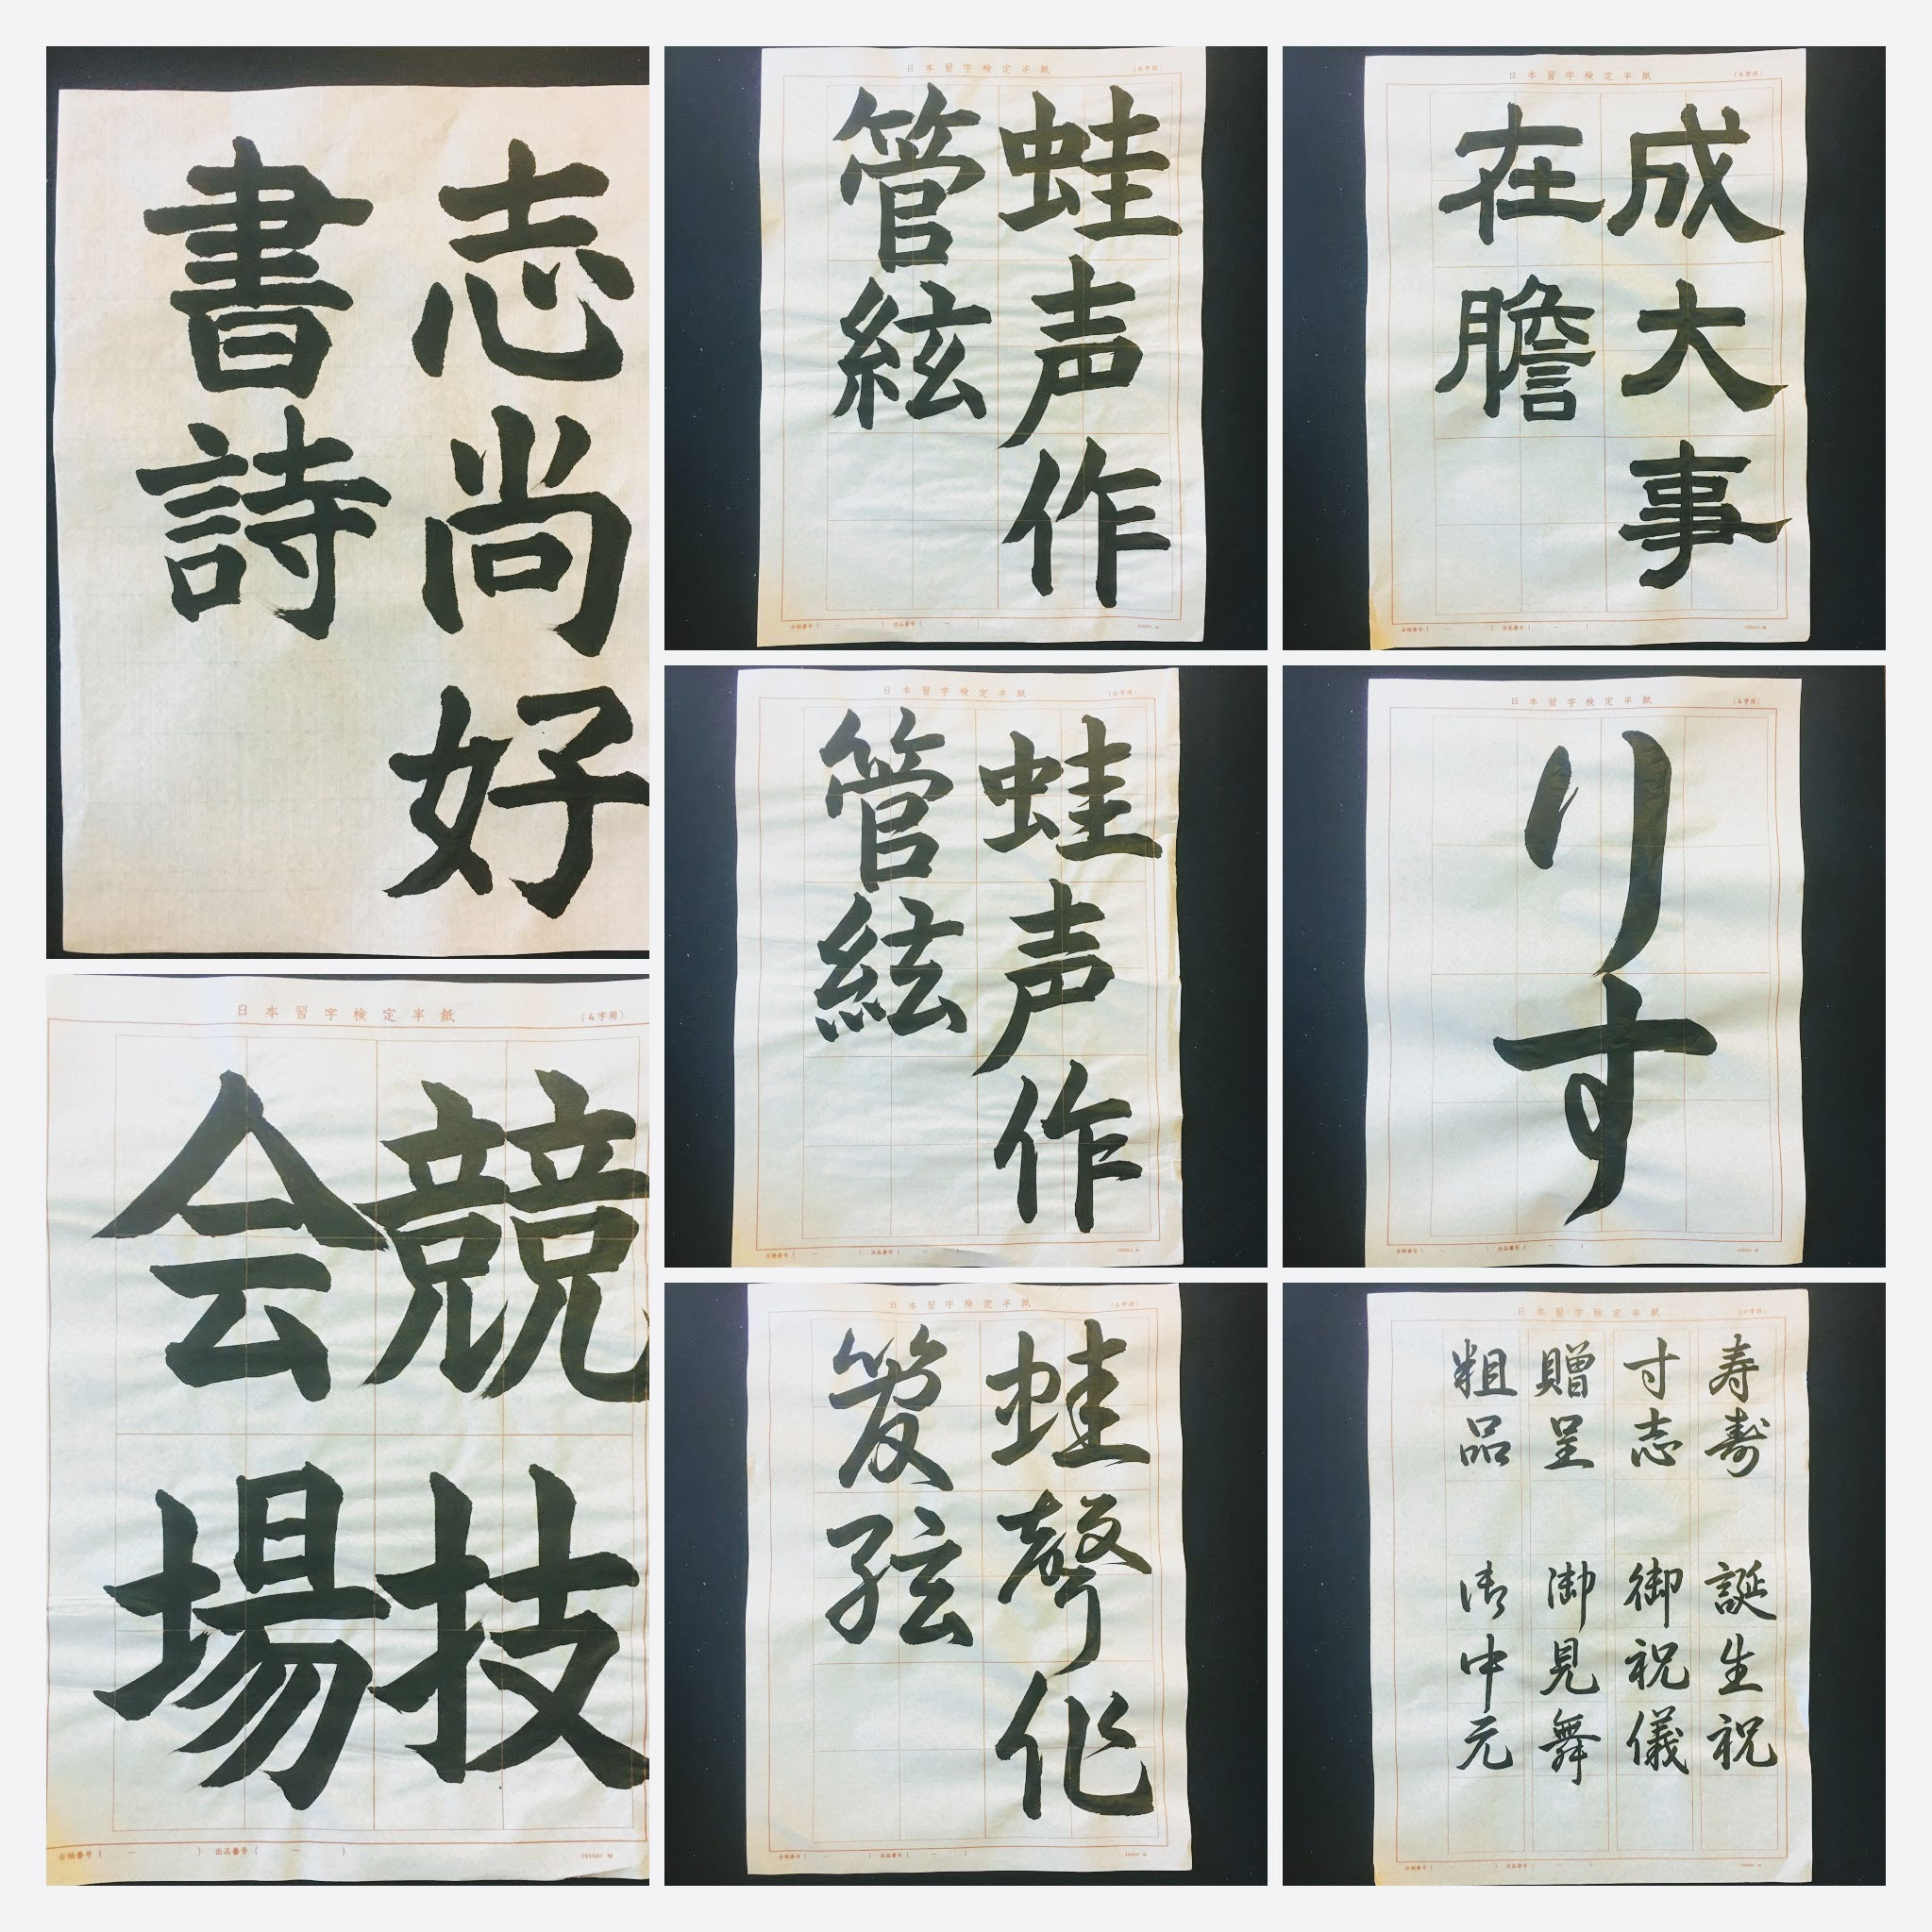 志尚好
書詩
日本習字検定半紙
(4字用)
競技
会場
台帳番号( － )
出品番号( － )
日本習字検定半紙
(6字用)
蛙声作
管絃
台帳番号( － )
出品番号( － )
日本習字検定半紙
(6字用)
蛙声作
管絃
台帳番号( － )
出品番号( － )
日本習字検定半紙
(6字用)
蛙聲作
管弦
台帳番号( － )
出品番号( － )
日本習字検定半紙
(6字用)
成大事
在膽
台帳番号( － )
出品番号( － )
日本習字検定半紙
(4字用)
りす
台帳番号( － )
出品番号( － )
日本習字検定半紙
寿壽 誕生祝
寸志 御祝儀
贈呈 御見舞
粗品 御中元
台帳番号( － )
出品番号( － )